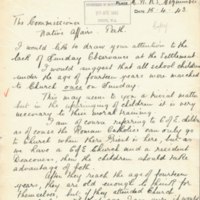 The Commissioner
Native Affairs Perth
I would like to draw your attention to the
lack of Sunday Observance at the Settlement
I would suggest that all school children
under the age of fourteen years were marched
to Church once on Sunday.
This may seem to you a small matter
but in the upbringing of children it is very
necessary to their moral training.
I am of course referring to C of E children
as of course the Roman Catholics can only go
to Church when their Priest is here, but as
we have a C of E Church and a resident
Deaconess, then the children should take
advantage of both.
After they reach the age of fourteen
years, they are old enough to think for
themselves, but if they attended Church